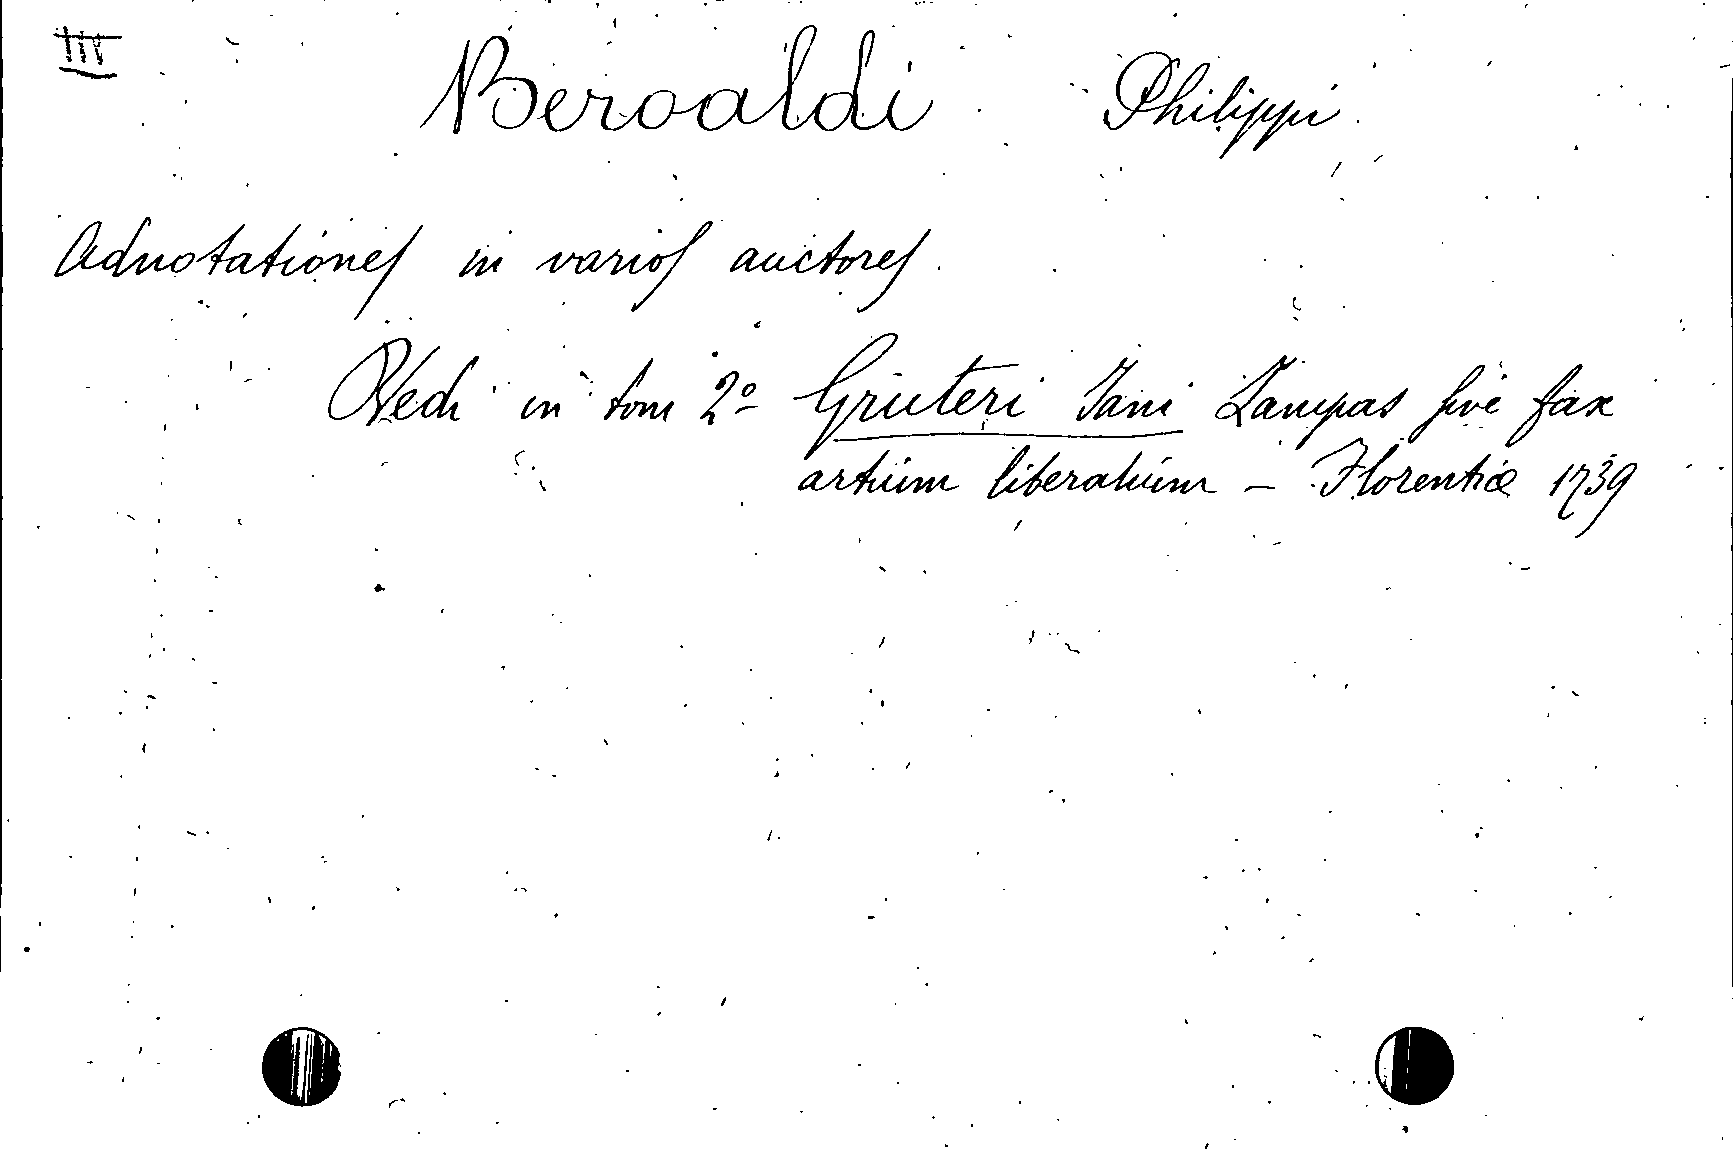 III
Beroaldi Philippi
Adnotationes in varios auctores
Vedi in tom 2º Gruteri Jani Lampas sive fax
artium liberalium – Florentiæ 1739